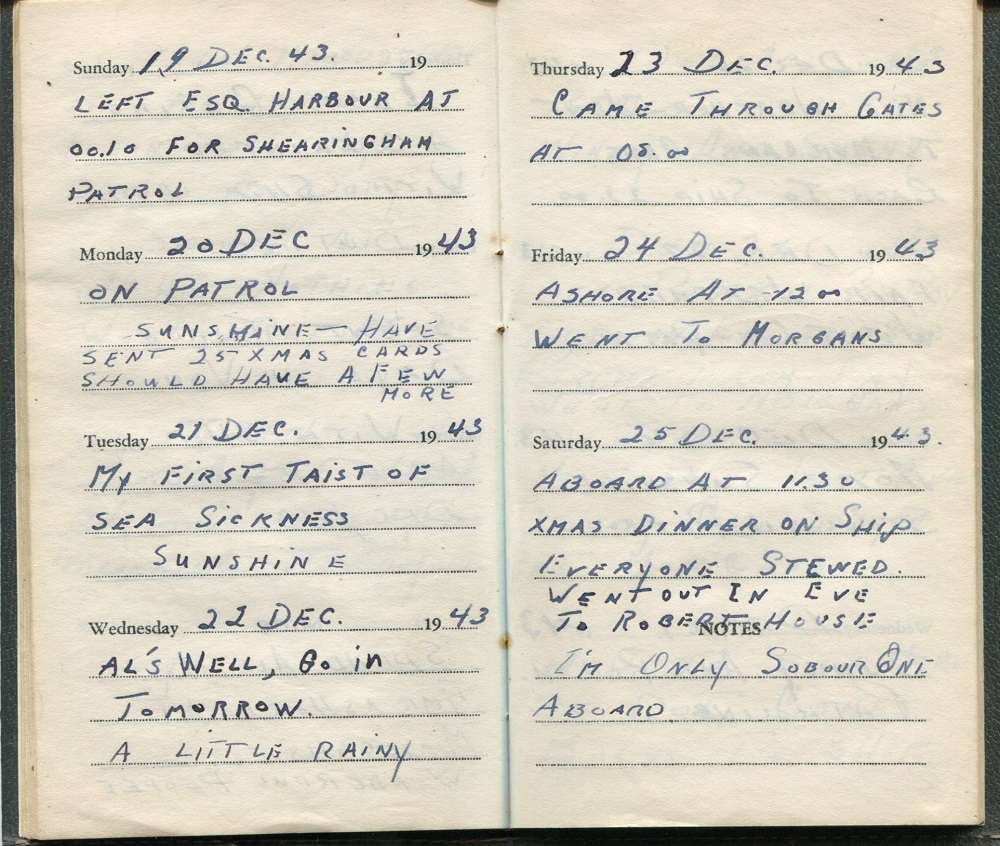 Sunday 19 DEC. 43. 19
LEFT ESQ. HARBOUR AT
00.10 FOR SHEARINGHAM
PATROL
Monday 20 DEC 1943
ON PATROL
SUNSHINE — HAVE
SENT 25 XMAS CARDS
SHOULD HAVE A FEW
MORE
Tuesday 21 DEC. 1943
MY FIRST TAIST OF
SEA SICKNESS
SUNSHINE
Wednesday 22 DEC. 1943
AL'S WELL, GO in
TOMORROW.
A LITTLE RAINY
Thursday 23 DEC. 1943
CAME THROUGH GATES
AT 08.00
Friday 24 DEC. 1943
ASHORE AT 1200
WENT TO MORGANS
Saturday 25 DEC. 1943.
ABOARD AT 11.30
XMAS DINNER ON SHIP
EVERYONE STEWED.
WENT OUT IN EVE
TO ROBERT HOUSE
NOTES
I'M ONLY SOBOUR ONE
ABOARD